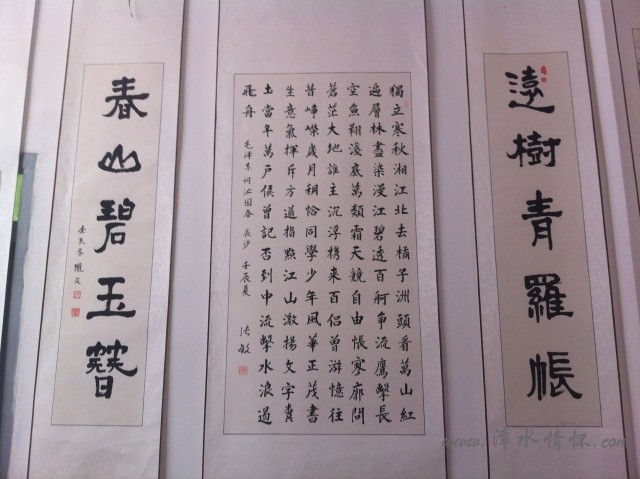 遠樹青羅帳
獨立寒秋湘江北去橘子洲頭看萬山紅
遍層林盡染漫江碧透百舸爭流鷹擊長
空魚翔淺底萬類霜天競自由悵寥廓問
蒼茫大地誰主沉浮携来百侣曾游憶往
昔崢嶸歲月稠恰同學少年風華正茂書
生意氣揮斥方遒指點江山激揚文字糞
土當年萬戶侯曾記否到中流擊水浪遏
飛舟
毛澤東詞沁园春 長沙 壬辰夏
张敏
春山碧玉簪
壬辰
www.漳水情怀.com